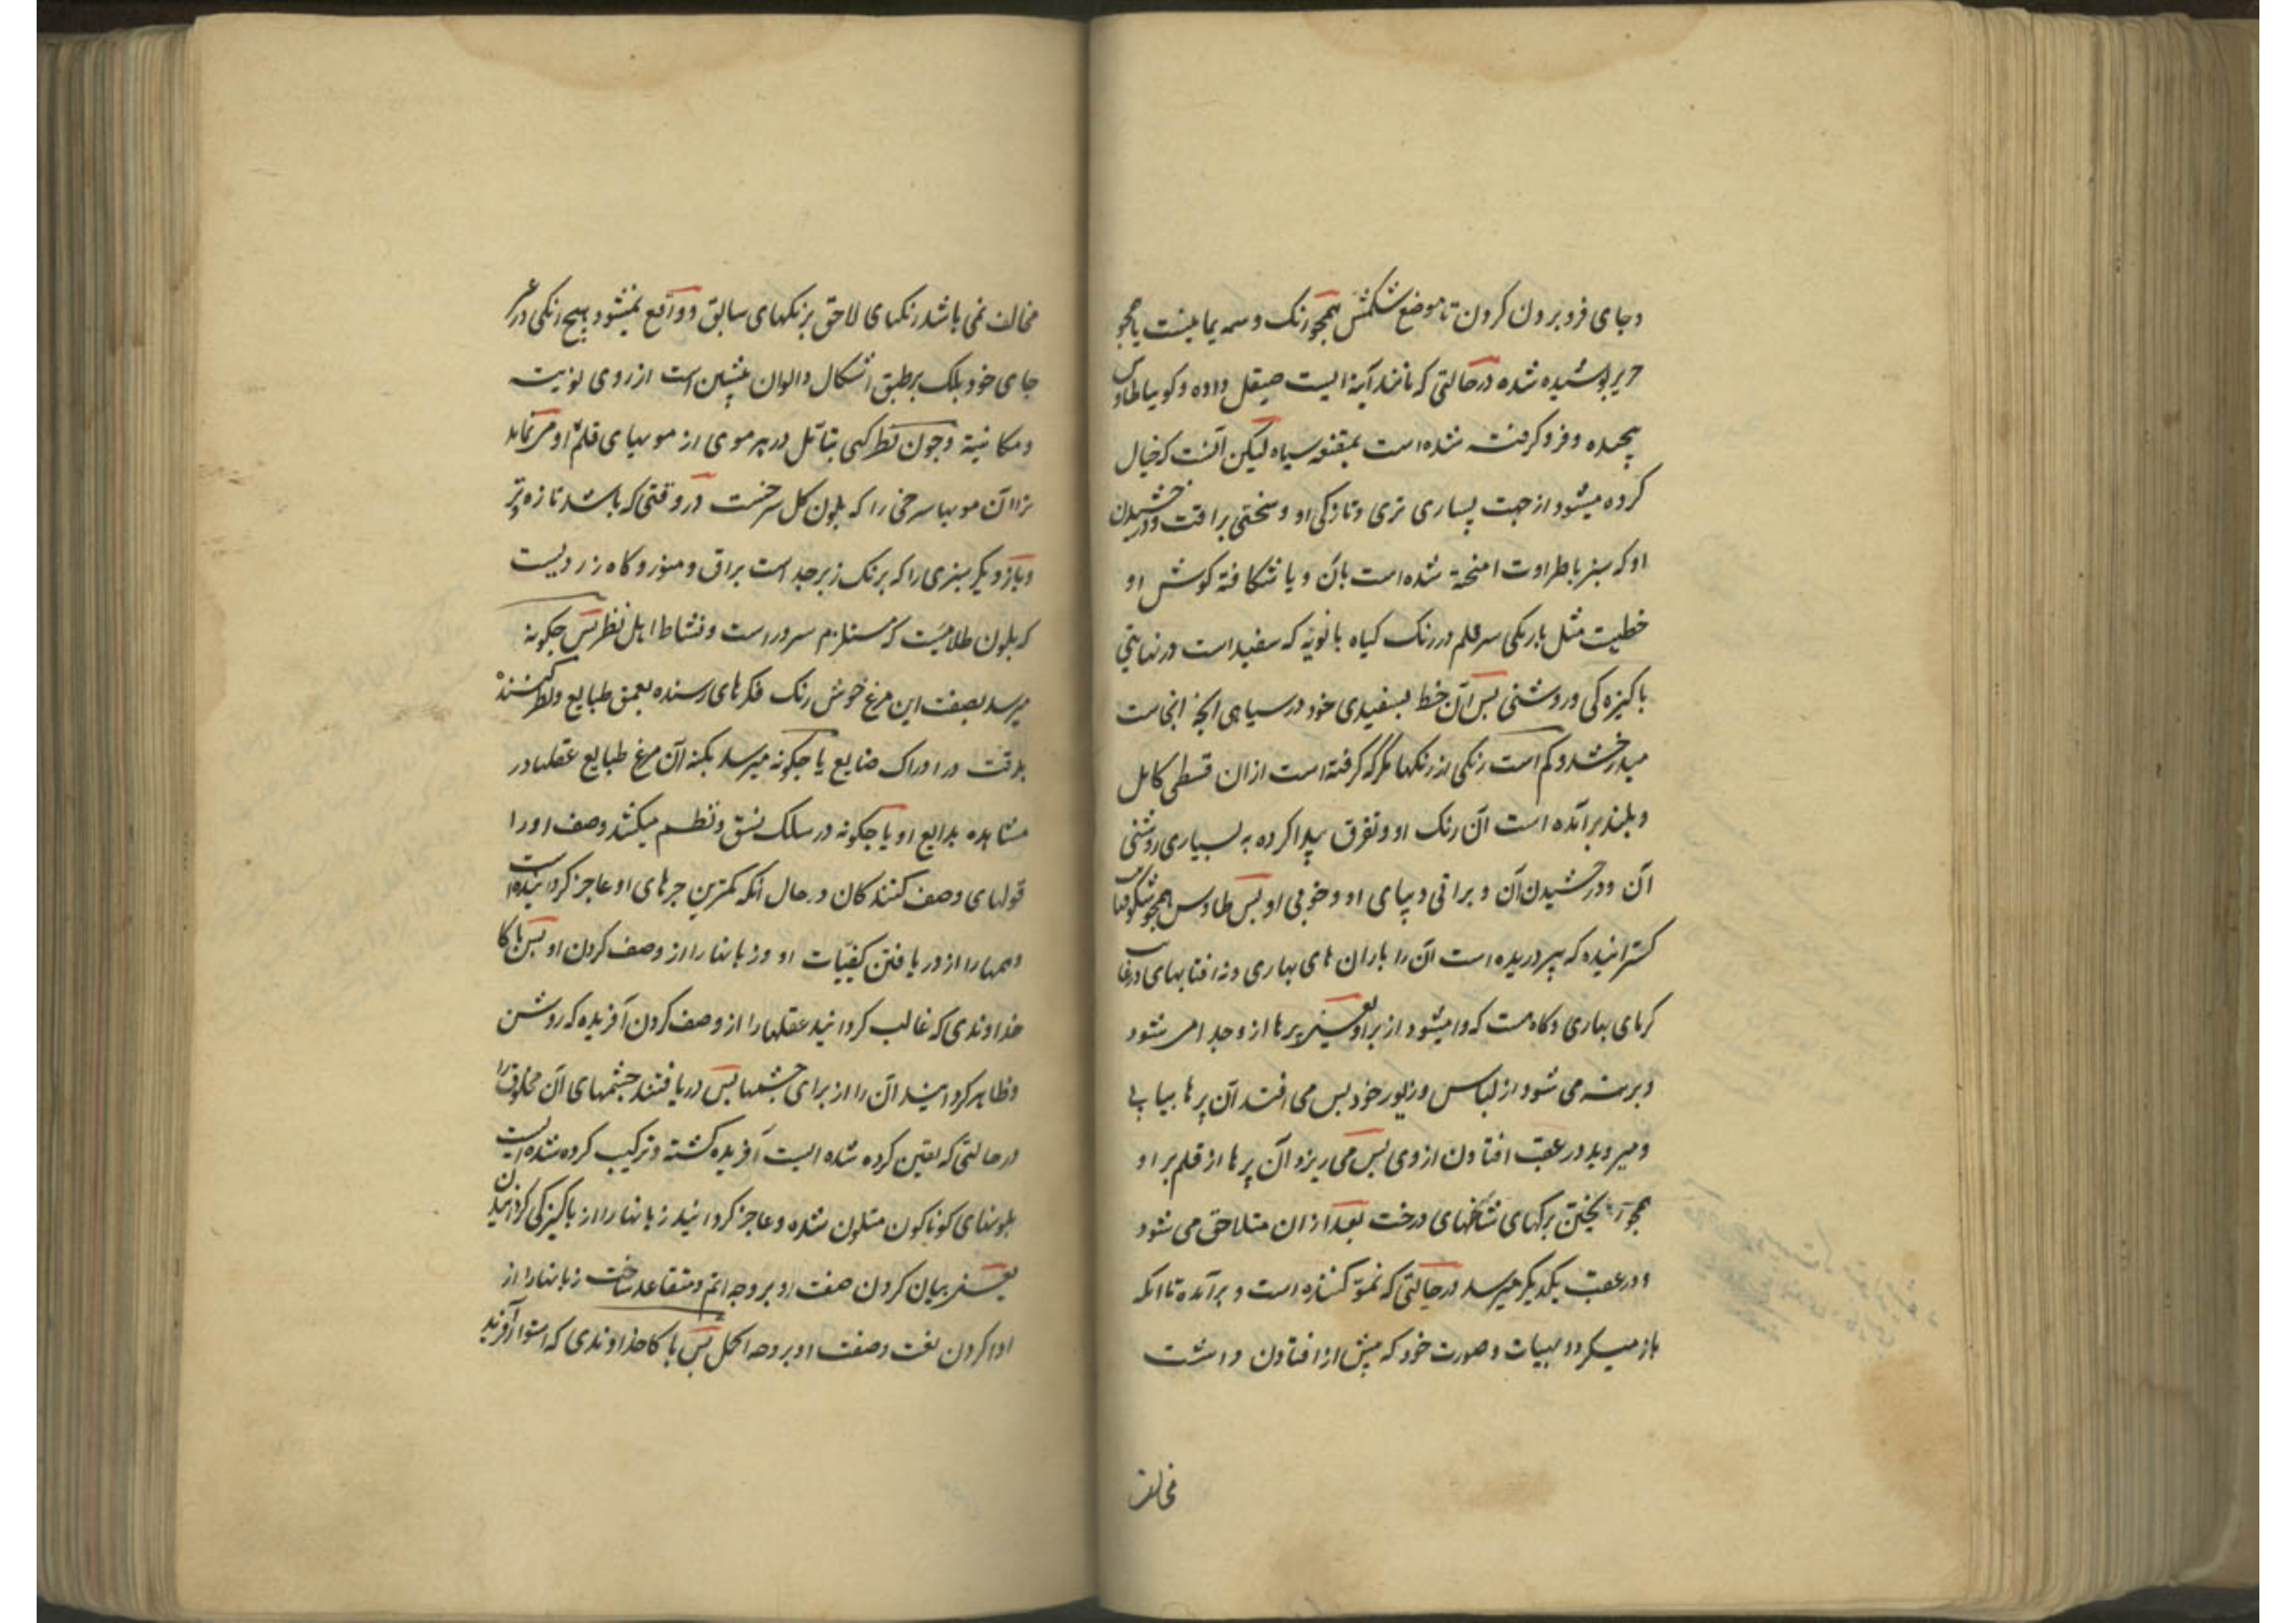 وجای فرو برون کردن تا موضع شکمش همچو رنگ وسمه یمانیست یا همچو
حریر پوشیده شده در حالتی که مانند آینه ایست صیقل داده و کوییا طاوس
پیچیده و فرو کرفته شده است بمقنعه سیاه لیکن آنست که خیال
کرده میشود از جهت بسیاری تری و تازکی او و سختی براقت و درخشیدن
او که سبز با طراوت امیخته شده است بان و با شکافته کوش او
خطیست مثل باریکی سر قلم در رنک کیاه بابونه که سفید است در نهایتی
پاکیزه کی و روشنی پس آن خط بسفیدی خود در سیاهی انچه انجاست
میدرخشد و کم است رنکی از رنکها مکر که کرفته است ازان قسطی کامل
و بلند برآمده است آن رنک او و تفوق پیدا کرده به بسیاری روشنی
آن و درخشیدن آن و براقی دیبای او و خوبی او پس طاوس همچو شکوفهای
کسترانیده که نپروریده است آن را باران های بهاری و نه افتابهای در غایت
کرمای بهاری و کاهست که وا میشود از بر او یعنی پرها از و جدا می شود
و برهنه می شود از لباس و زیور خود پس می افتد آن پرها پیاپی
و میروید در عقب افتادن از وی پس می ریزد آن پرها از قلم پر او
همچو ریختن برکهای شاخهای درخت بعد ازان متلاحق می شود
و در عقب یکدیکر میرسد در حالتی که نمو کننده است و برآمده تا انکه
باز میکردد بهیات و صورت خود که پیش از افتادن داشت
مخالف
مخالف نمی باشد رنکهای لاحق برنکهای سابق و واقع نمیشود هیچ رنکی در غیر
جای خود بلکه برطبق اشکال و الوان پیشین است از روی لونیت
و مکانیة و چون نظر کنی بتامل در هر موی از مویهای قلم او می نماید
ترا آن مویها سرخی را که بلون کل سرخست در وقتی که باشد تازه تر
و باز دیکر سبزی را که برنک زبرجد است براق و منور و کاه زردیست
که بلون طلاییست که مستلزم سرور است و نشاط اهل نظر پس چکونه
میرسد بصفت این مرغ خوش رنک فکرهای رسنده بعمق طبایع و نظر کننده
بدقت در ادراک صنایع یا چکونه میرسد بکنه آن مرغ طبایع عقلها در
مشاهده بدایع او یا چکونه در سلک نسق و نظم میکشد وصف او را
قولهای وصف کنندکان و حال آنکه کمترین جزهای او عاجز کردانیده است
وهمها را از دریافتن کیفیات او و زبانها را از وصف کردن او پس پاکا
خداوندی که غالب کردانید عقلها را از وصف کردن آفریده که روشن
و ظاهر کردانید آن را از برای چشمها پس دریافتند چشمهای آن مخلوق را
در حالتی که تعین کرده شده ایست آفریده کشته و ترکیب کرده شده ایست
بلونهای کوناکون متلون شده و عاجز کردانید زبانها را از پاکیزکی کردانیدن
یعنی بیان کردن صفت او بر وجه اتم و متقاعد ساخت زبانها را از
ادا کردن نعت و صفت او بر وجه اکمل پس پاکا خداوندی که استوار آفرید